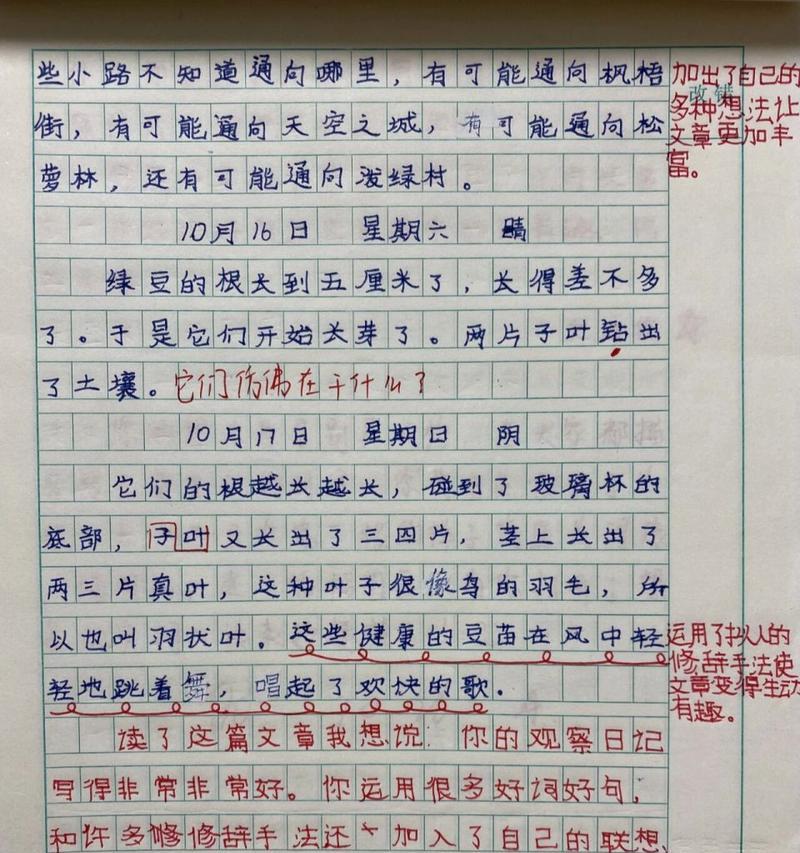 些小路不知道通向哪里，有可能通向枫梧
街，有可能通向天空之城，有可能通向松
萝林，还有可能通向泼绿村。
加出了自己的
多种想法让
文章更加丰
富。
改错
10月16日 星期六 晴
绿豆的根长到五厘米了，长得差不多
了。于是它们开始长芽了。两片子叶钻出
了土壤。它们仿佛在干什么？
10月17日 星期日 阴
它们的根越长越长，碰到了玻璃杯的
底部，子叶又长出了三四片，茎上长出了
两三片真叶，这种叶子很像鸟的羽毛，所
以也叫羽状叶。这些健康的豆苗在风中轻
轻地跳着舞，唱起了欢快的歌。
运用了拟人的
修辞手法使
文章变得生动
有趣。
读了这篇文章我想说：你的观察日记
写得非常非常好。你运用很多好词好句，
和许多修修辞手法还 加入了自己的联想，